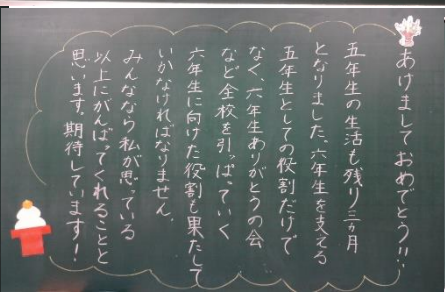 あけましておめでとう!!
五年生の生活も残り三ヵ月
となりました。六年生を支える
五年生としての役割だけで
なく、六年生ありがとうの会
など全校を引っぱっていく
六年生に向けた役割も果たして
いかなければなりません。
みんななら私が思っている
以上にがんばってくれることと
思います。期待しています!